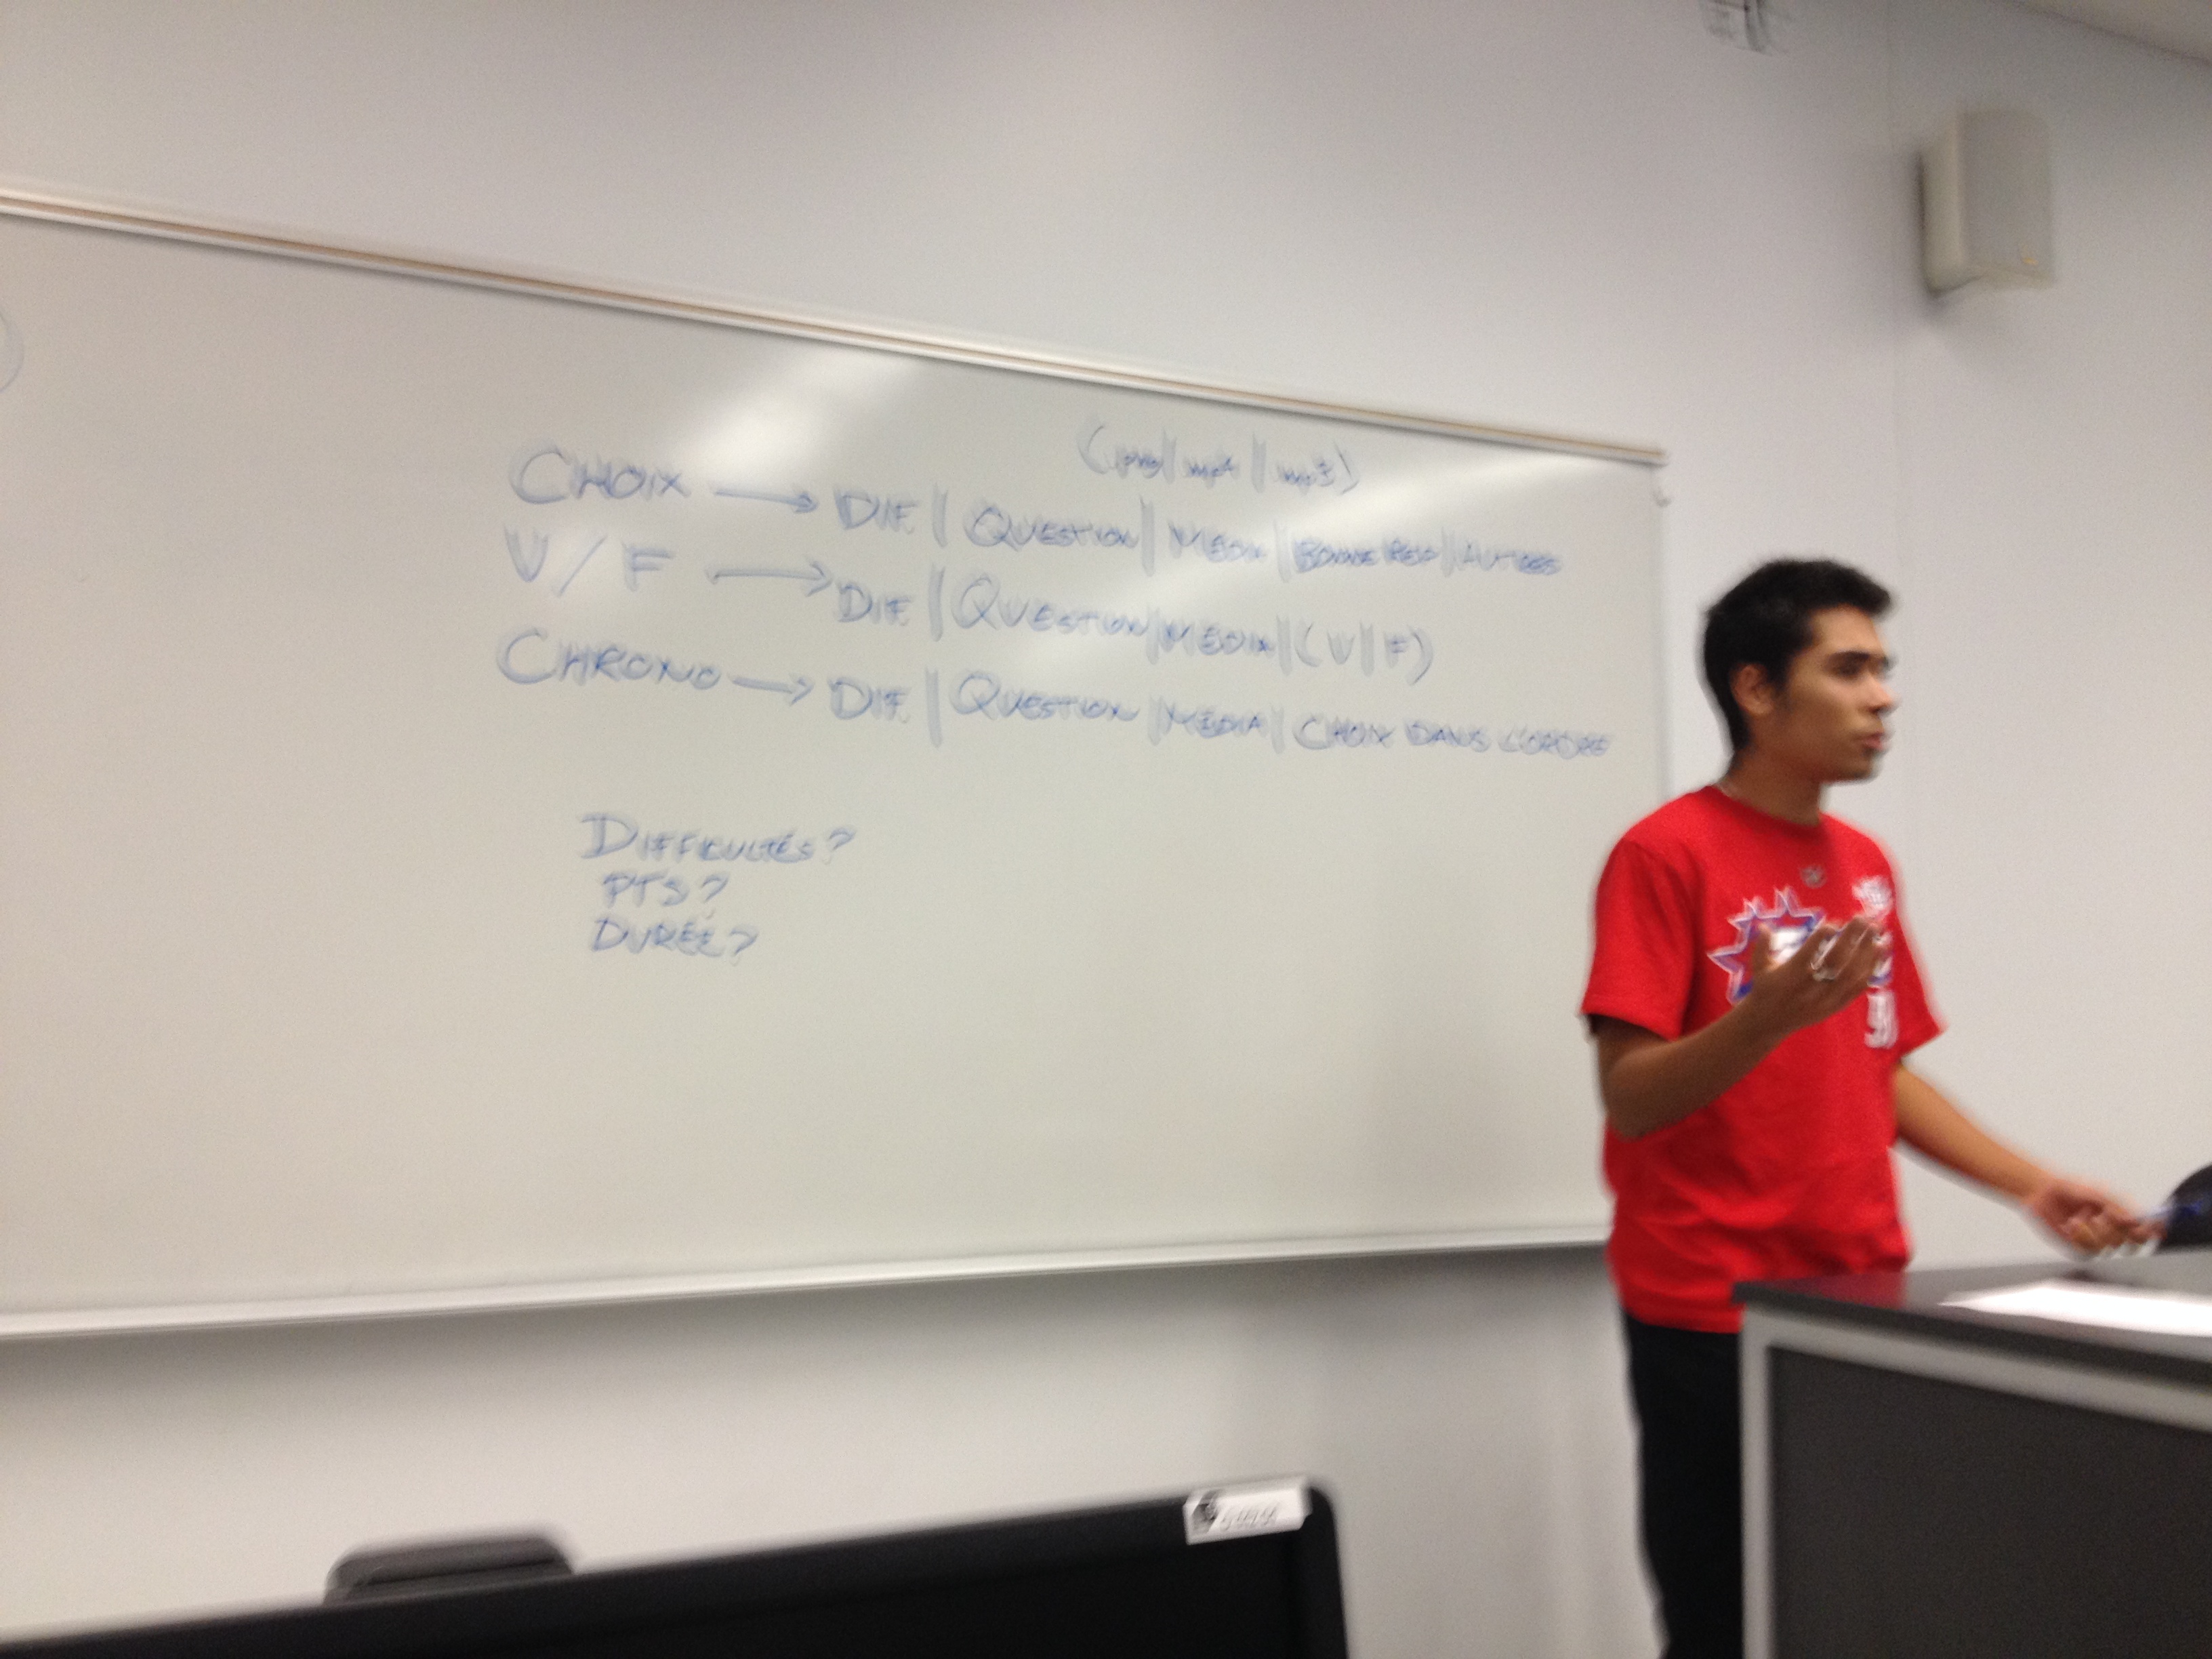 (png | mp4 | mp3)
CHOIX → DIF. | QUESTION | MÉDIA | BONNE REP | AUTRES
V / F → DIF. | QUESTION | MÉDIA | (V | F)
CHRONO → DIF. | QUESTION | MÉDIA | CHOIX DANS L'ORDRE
DIFFICULTÉS?
PTS?
DURÉE?